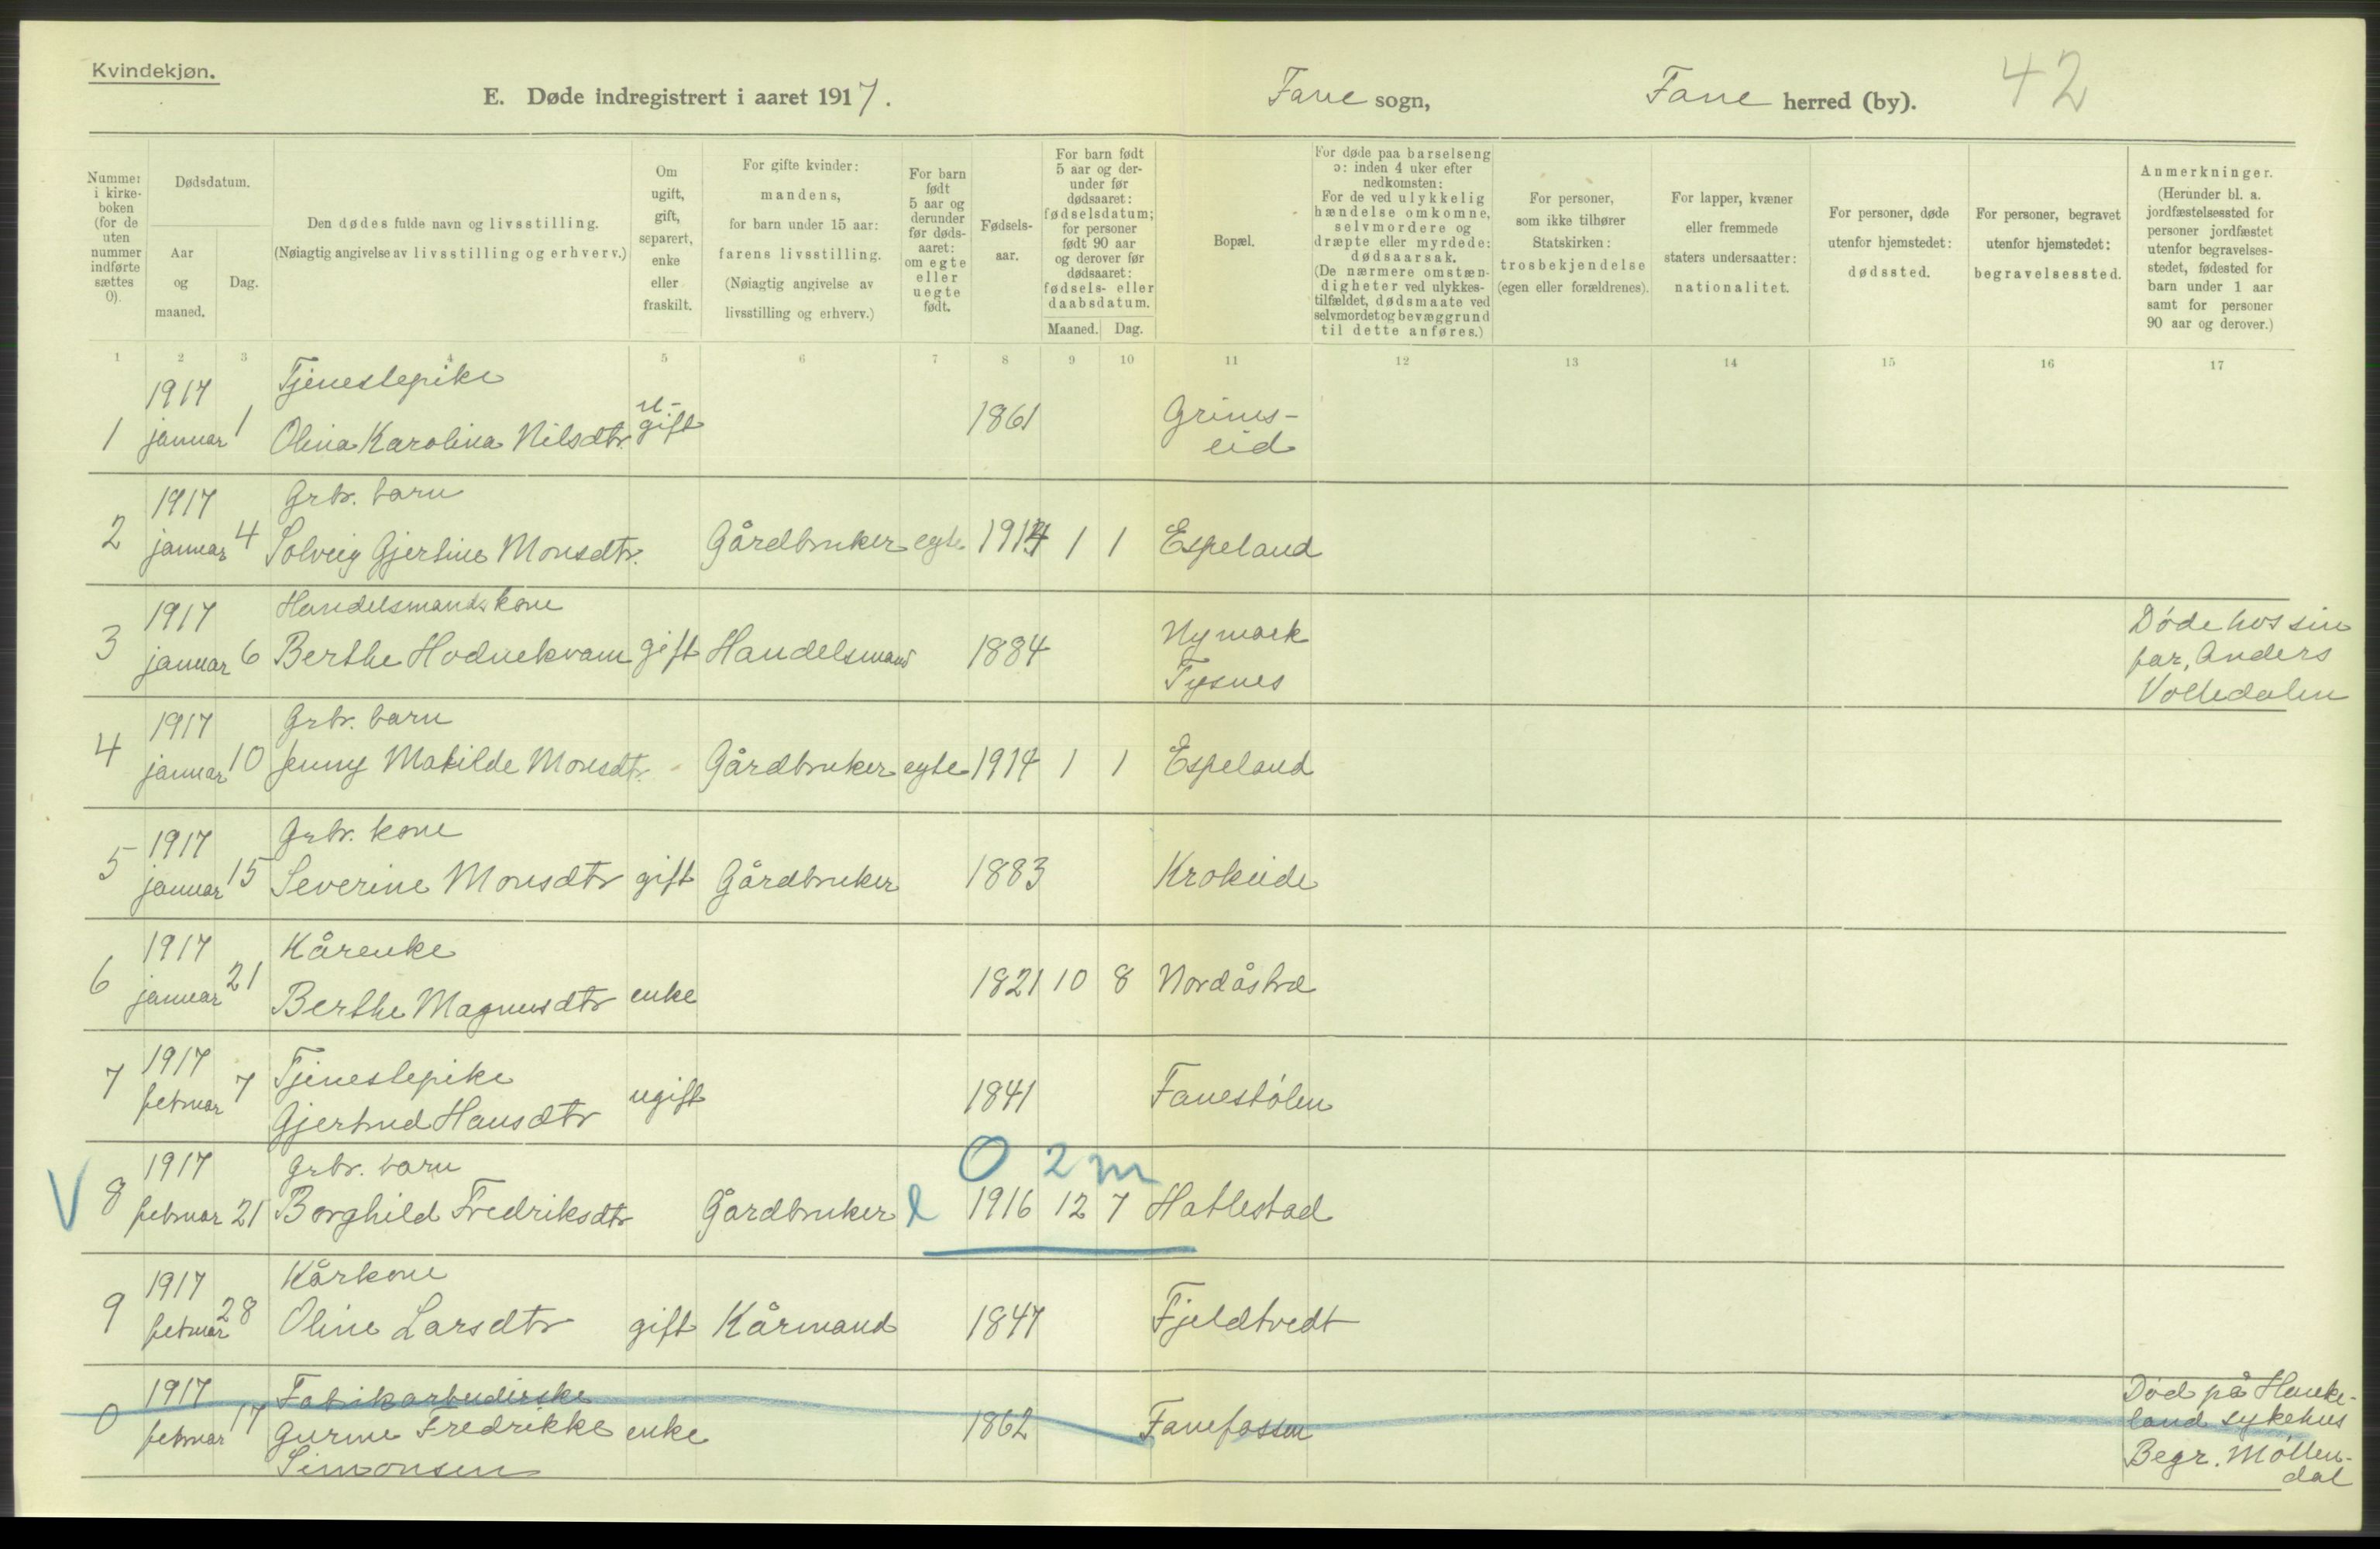 Kvindekjøn.
E. Døde indregistrert i aaret 1917.
Fane sogn,
Fane herred (by).
42
Nummer i kirkeboken (for de uten nummer indførte sættes 0).
Dødsdatum.
Aar og maaned.
Dag.
Den dødes fulde navn og livsstilling.
(Nøiagtig angivelse av livsstilling og erhverv.)
Om ugift, gift, separert, enke eller fraskilt.
For gifte kvinder: mandens, for barn under 15 aar: farens livsstilling. (Nøiagtig angivelse av livsstilling og erhverv.)
For barn født 5 aar og derunder før dødsaaret: om egte eller uegte født.
Fødselsaar.
For barn født 5 aar og derunder før dødsaaret: fødselsdatum; for personer født 90 aar og derover før dødsaaret: fødsels- eller daabsdatum.
Maaned. Dag.
Bopæl.
For døde paa barselseng ɔ: inden 4 uker efter nedkomsten: For de ved ulykkelig hændelse omkomne, selvmordere og dræpte eller myrdede: dødsaarsak. (De nærmere omstændigheter ved ulykkestilfældet, dødsmaate ved selvmordet og bevæggrund til dette anføres.)
For personer, som ikke tilhører Statskirken: trosbekjendelse (egen eller forældrenes).
For lapper, kvæner eller fremmede staters undersaatter: nationalitet.
For personer, døde utenfor hjemstedet: dødssted.
For personer, begravet utenfor hjemstedet: begravelsessted.
Anmerkninger. (Herunder bl. a. jordfæstelsessted for personer jordfæstet utenfor begravelsesstedet, fødested for barn under 1 aar samt for personer 90 aar og derover.)
1 2 3 4 5 6 7 8 9 10 11 12 13 14 15 16 17
1917 Tjenestepike u- Grims-
1 januar 1 Olina Karolina Nilsdtr. gift 1861 eid
1917 Grbr. barn
2 januar 4 Solveig Gjertine Monsdtr. Gårdbruker egte 1914 1 1 Espeland
1917 Handelsmandskone Nymark Døde hos sin
3 januar 6 Berthe Hodnekvam gift Handelsmand 1884 Tysnes far, Anders
Volledalen
1917 Grbr. barn
4 januar 10 Jenny Matilde Monsdtr. - Gårdbruker egte 1914 1 1 Espeland
1917 Grbr. kone
5 januar 15 Severine Monsdtr gift Gårdbruker 1883 Krokeide
1917 Kårenke
6 januar 21 Berthe Magnusdtr enke 1821 10 8 Nordåstræ
1917 Tjenestepike
7 februar 7 Gjertrud Hansdtr ugift 1841 Fanestølen
0 2 m
1917 Grbr. barn
V 8 februar 21 Borghild Fredriksdtr Gårdbruker l 1916 12 7 Hatlestad
1917 Kårkone
9 februar 28 Oline Larsdtr gift Kårmand 1847 Fjeldtvedt
1917 Fabrikarbeiderske Død på Hauke-
0 februar 17 Gurine Fredrikke enke 1862 Fanefossen land sykehus
Simonsen Begr. Møllen-
dal